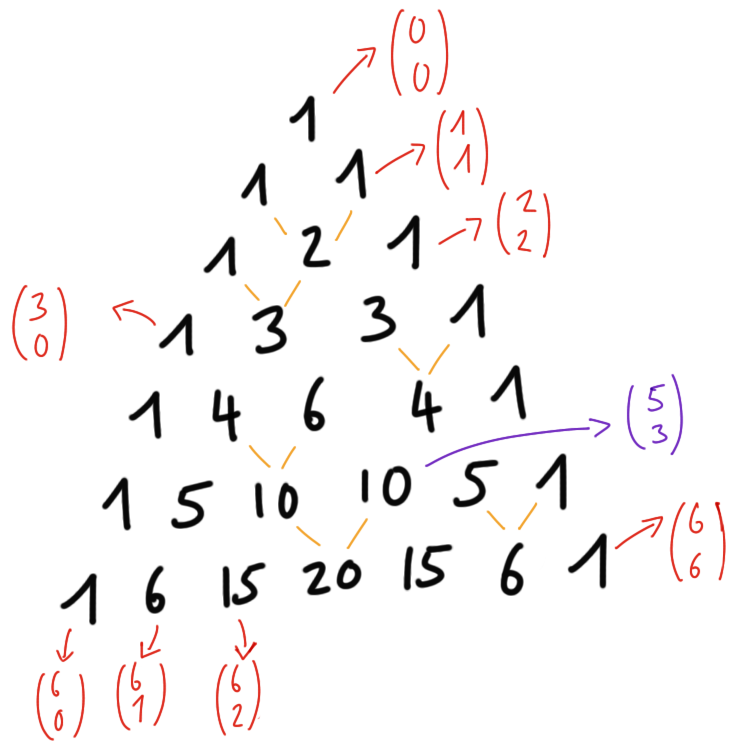 1 → (0 0)
1 1 → (1 1)
1 2 1 → (2 2)
(3 0) ← 1 3 3 1
1 4 6 4 1
1 5 10 10 5 1 → (5 3)
1 6 15 20 15 6 1 → (6 6)
(6 0) (6 1) (6 2)